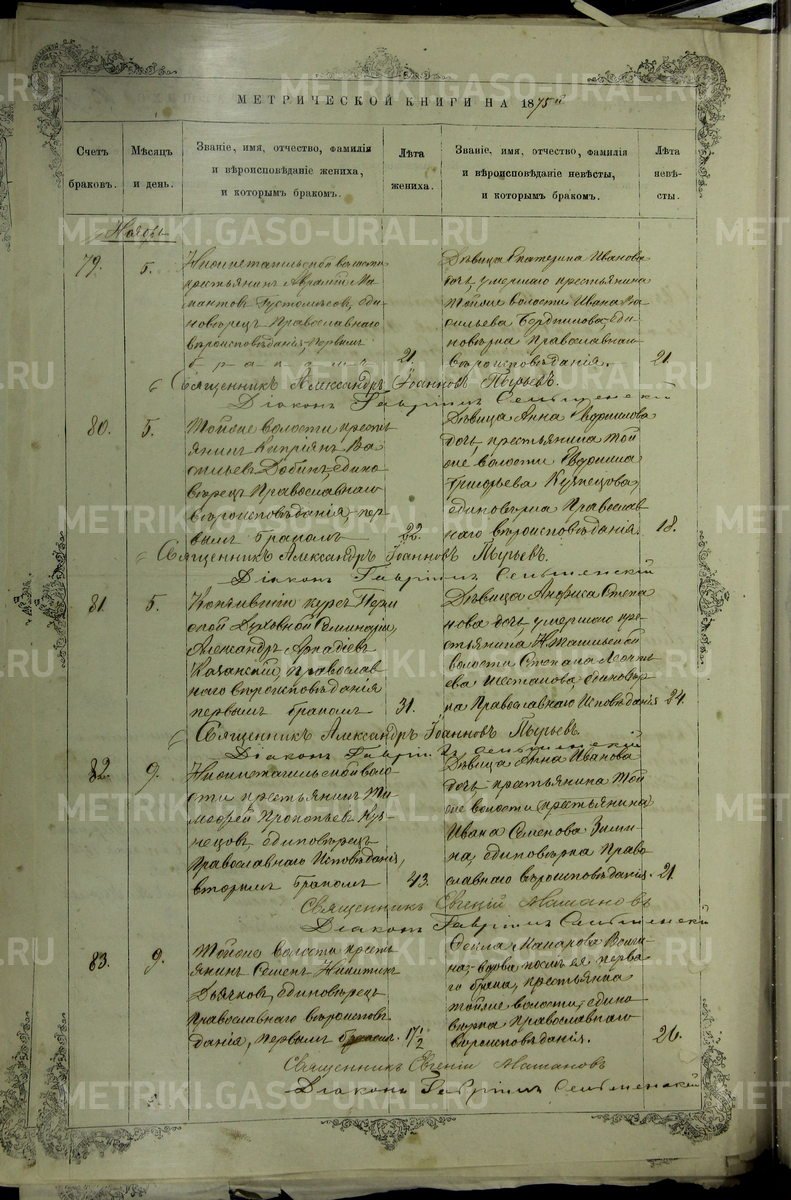 МЕТРИЧЕСКОЙ КНИГИ НА 1875й
Счетъ браковъ.
Мѣсяцъ и день.
Званіе, имя, отчество, фамилія
и вѣроисповѣданіе жениха,
и которымъ бракомъ.
Лѣта жениха.
Званіе, имя, отчество, фамилія
и вѣроисповѣданіе невѣсты,
и которымъ бракомъ.
Лѣта невѣ-
сты.
Ноябрь
79.
5.
Нижнетагильской волости
крестьянинъ
единовѣрецъ Православнаго
вѣроисповѣданія, первымъ
бракомъ
21.
Дѣвица Екатерина Иванова
дочь умершаго крестьянина
тойже волости Ивана Ва-
сильева еди-
новѣрка Православнаго
вѣроисповѣданія.
21.
Священникъ Александръ Іоанновъ Пырьевъ.
Діаконъ Гавріилъ
80.
5.
Тойже волости кресть
янинъ Кипріянъ Ва
сильевъ едино
вѣрецъ Православнаго
вѣроисповѣданія, пер-
вымъ бракомъ
22.
Дѣвица Анна
дочь крестьянина той
же волости
Григорьева Кузнецова,
единовѣрка Православ
наго вѣроисповѣданія.
18.
Священникъ Александръ Іоанновъ Пырьевъ.
Діаконъ Гавріилъ
81.
5.
Кончившій курсъ Перм
ской Духовной Семинаріи,
Александръ Аркадіевъ
Казанскій, православ
наго вѣроисповѣданія
первымъ бракомъ
31.
Дѣвица Анфиса Степа
нова дочь умершаго кре-
стьянина Н.Тагильской
волости Степана
Шестакова, единовѣр
ка Православнаго Исповѣданія
24.
Священникъ Александръ Іоанновъ Пырьевъ.
Діаконъ Гавріилъ
82.
9.
Нижнетагильской воло-
сти крестьянинъ Ти
мофей Прокопьевъ Куз-
нецовъ, единовѣрецъ
Православнаго Исповѣданія,
вторымъ бракомъ
43.
Дѣвица Анна Иванова
дочь крестьянина той
же волости крестьянина
Ивана Семенова Зими
на, единовѣрка Право
славнаго вѣроисповѣданія.
21
Священникъ Евгеній
Діаконъ Гавріилъ
83.
9.
Тойже волости кресть
янинъ Семенъ Никитинъ
Дьячковъ, единовѣрецъ
православнаго вѣроисповѣ
данія, первымъ бракомъ.
17 1/2
Ѳекла Макарова
вдова послѣ ея перва
го брака, крестьянка
тойже волости, едино
вѣрка Православнаго
вѣроисповѣданія.
26.
Священникъ Евгеній
Діаконъ Гавріилъ
METRIKI.GASO-URAL.RU